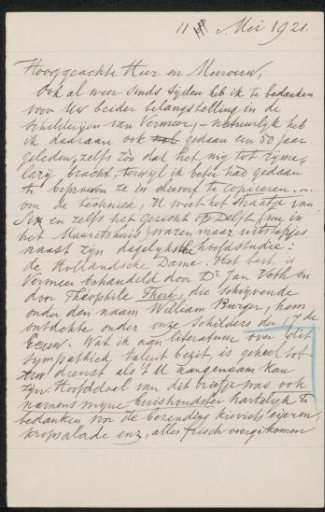 11 Mei 1921.
Hooggeachte Heer en Mevrouw,
Ook al weer sinds tijden heb ik te bedanken
voor Uw beider belangstelling in de
schilderijen van Vermeer, – natuurlijk heb
ik daaraan ook gedaan een 50 jaar
geleden, zelfs zóó dat het mij tot
bracht, terwijl ik beter had gedaan
te beproeven ze in te copieeren
om de techniek, U weet het straatje van
Six en zelfs het gezicht op Delft (nu in
het Mauritshuis) waren maar uitstapjes
naast zijn dagelijksche hoofdstudie:
de Hollandsche Dame. Het best is
Vermeer behandeld door Dr Jan Veth en
door Théophile Thoré, die schrijvende
onder den naam William Bürger, hem
ontdekte onder onze schilders der 17de
Eeuw. Wat ik aan literatuur over dit
sympathiek talent bezit, is geheel tot
dienst als 't U aangenaam kan
zijn. Hoofddoel van dit briefje was ook
namens mijne huishoudster hartelijk te
bedanken voor de bezending kievietseijeren,
kropsalade enz, alles frisch overgekomen